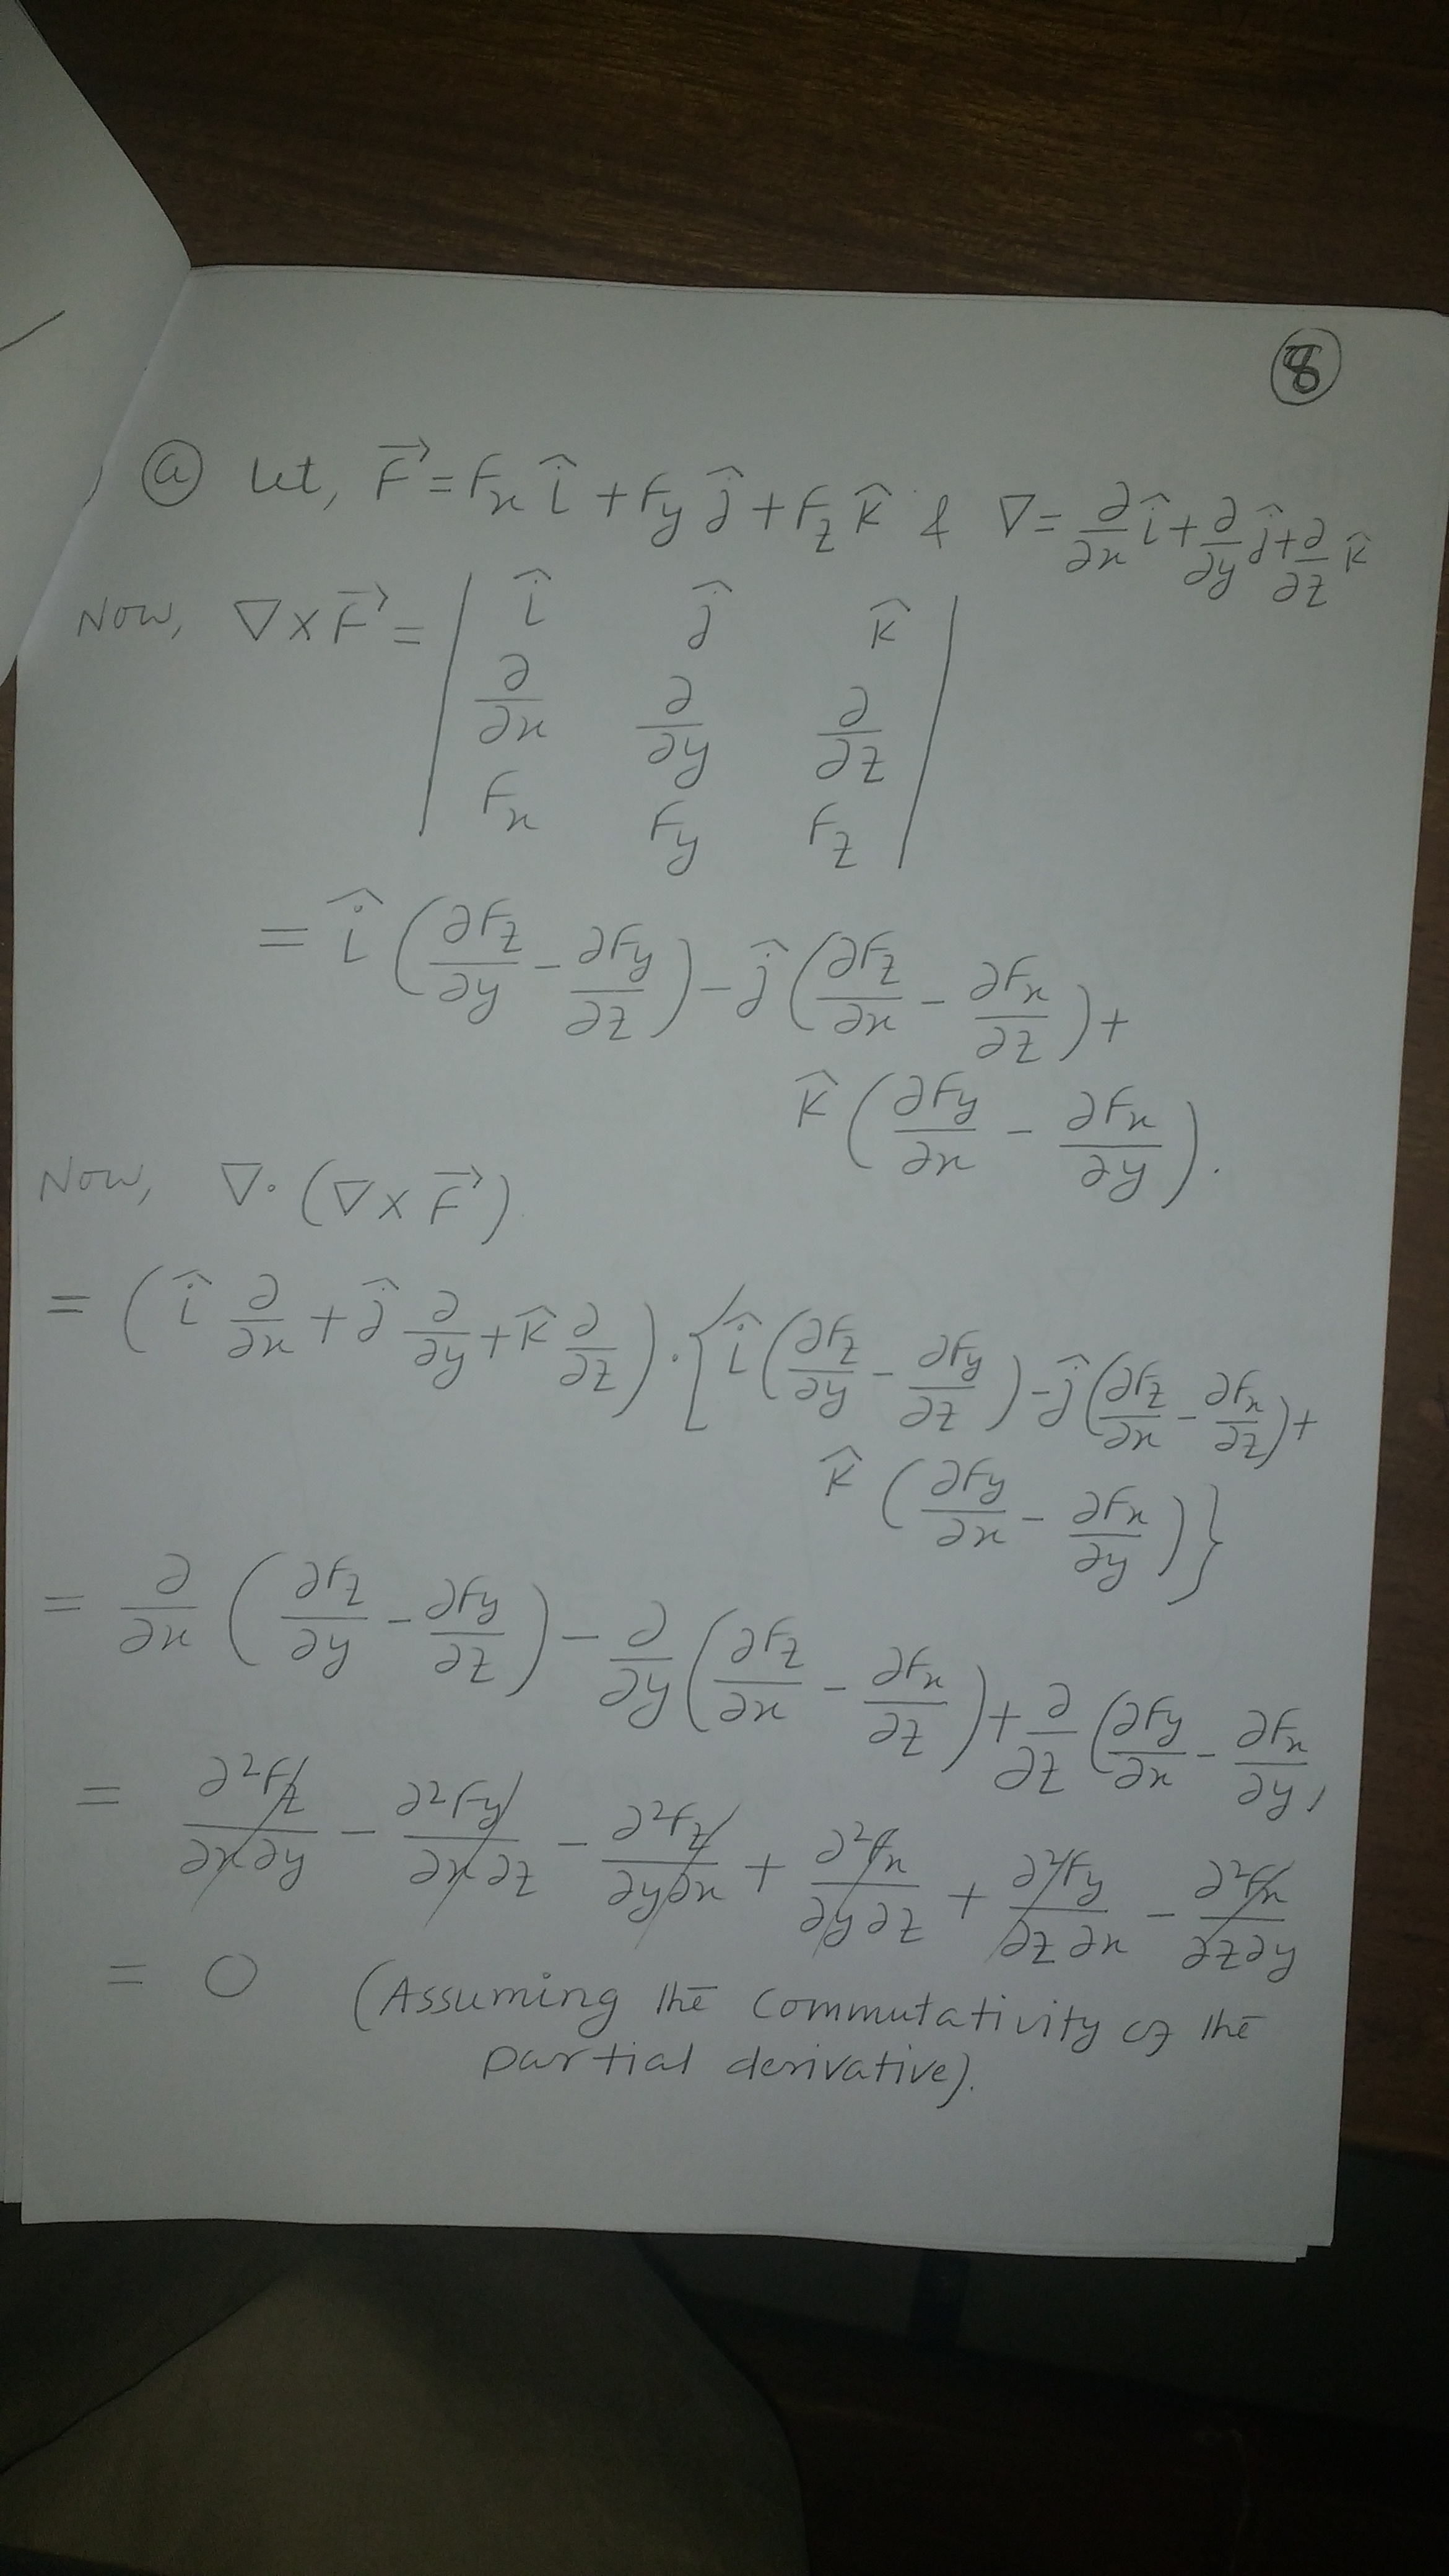 ⑧
ⓐ Let, F⃗ = Fx î + Fy ĵ + Fz k̂ & ∇ = ∂/∂x î + ∂/∂y ĵ + ∂/∂z k̂
Now, ∇ × F⃗ = | î ĵ k̂ |
| ∂/∂x ∂/∂y ∂/∂z |
| Fx Fy Fz |
= î (∂Fz/∂y - ∂Fy/∂z) - ĵ (∂Fz/∂x - ∂Fx/∂z) +
k̂ (∂Fy/∂x - ∂Fx/∂y).
Now, ∇ · (∇ × F⃗)
= (î ∂/∂x + ĵ ∂/∂y + k̂ ∂/∂z) · {î (∂Fz/∂y - ∂Fy/∂z) - ĵ (∂Fz/∂x - ∂Fx/∂z) +
k̂ (∂Fy/∂x - ∂Fx/∂y)}
= ∂/∂x (∂Fz/∂y - ∂Fy/∂z) - ∂/∂y (∂Fz/∂x - ∂Fx/∂z) + ∂/∂z (∂Fy/∂x - ∂Fx/∂y)
= ∂²Fz/∂x∂y - ∂²Fy/∂x∂z - ∂²Fz/∂y∂x + ∂²Fx/∂y∂z + ∂²Fy/∂z∂x - ∂²Fx/∂z∂y
= 0 (Assuming the commutativity of the
partial derivative).